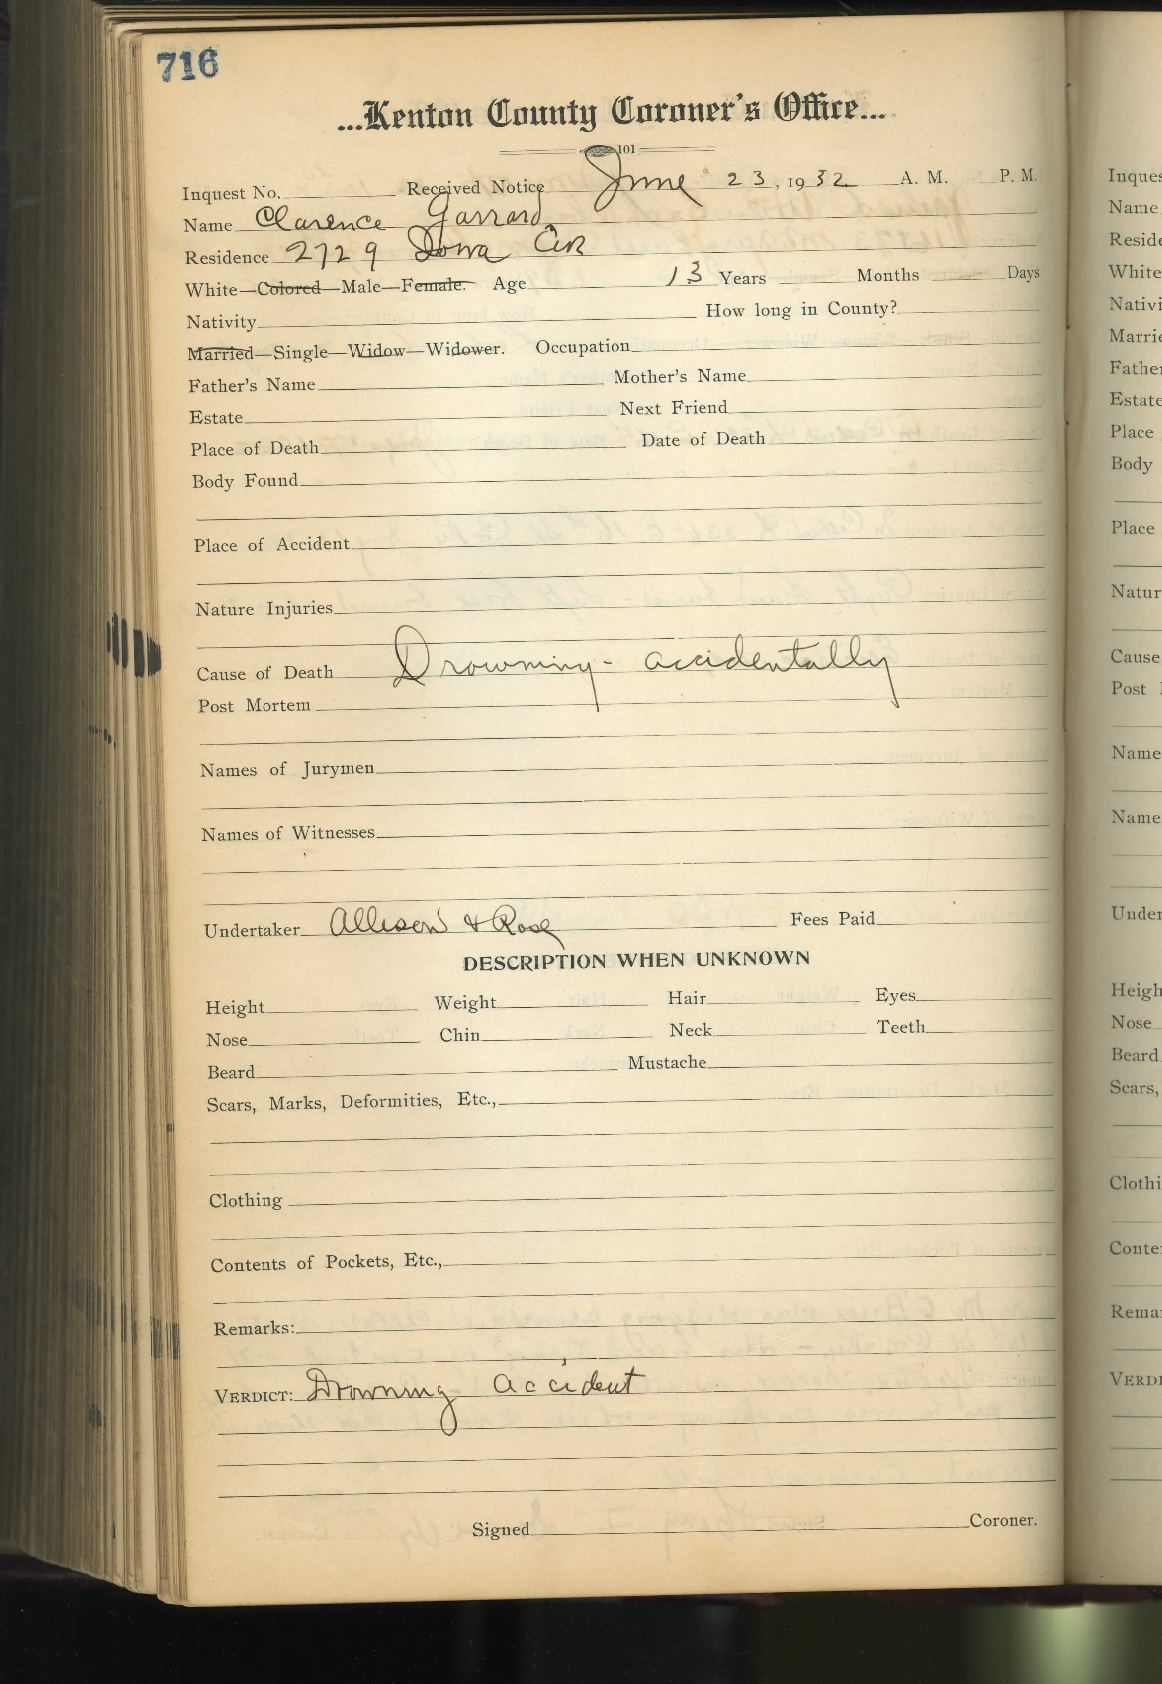 716
...Kenton County Coroner's Office...
101
Inquest No. Received Notice June 23, 1932 A. M. P. M.
Name Clarence Garrard
Residence 2729 Iowa
White—Colored—Male—Female. Age 13 Years Months Days
Nativity How long in County?
Married—Single—Widow—Widower. Occupation
Father's Name Mother's Name
Estate Next Friend
Place of Death Date of Death
Body Found
Place of Accident
Nature Injuries
Cause of Death Drowning - accidentally
Post Mortem
Names of Jurymen
Names of Witnesses
Undertaker Allison & Rose Fees Paid
DESCRIPTION WHEN UNKNOWN
Height Weight Hair Eyes
Nose Chin Neck Teeth
Beard Mustache
Scars, Marks, Deformities, Etc.,
Clothing
Contents of Pockets, Etc.,
Remarks:
VERDICT: Drowning accident
Signed Coroner.
Inques
Name
Reside
White
Nativi
Marrie
Father
Estate
Place
Body
Place
Natur
Cause
Post
Name
Name
Under
Heigh
Nose
Beard
Scars,
Clothi
Conte
Remar
VERDI